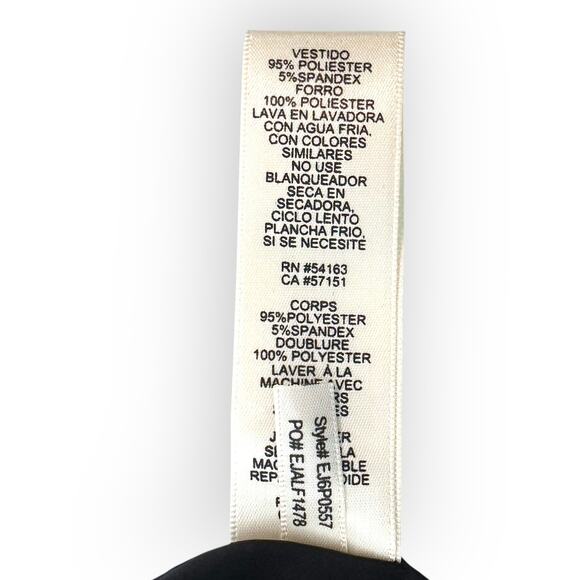 VESTIDO
95% POLIESTER
5%SPANDEX
FORRO
100% POLIESTER
LAVA EN LAVADORA
CON AGUA FRIA,
CON COLORES
SIMILARES
NO USE
BLANQUEADOR
SECA EN
SECADORA,
CICLO LENTO
PLANCHA FRIO,
SI SE NECESITE
RN #54163
CA #57151
CORPS
95%POLYESTER
5%SPANDEX
DOUBLURE
100% POLYESTER
LAVER À LA
MACHINE AVEC
Style# EJ6P0557
PO# EJALF1478